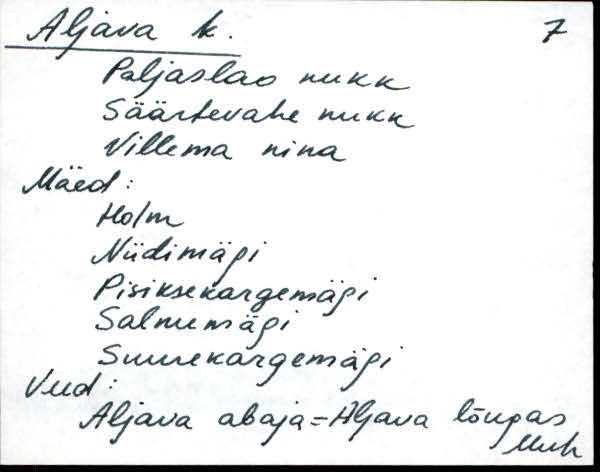 Aljava k. 7
Paljaslao nukk
Säärtevahe nukk
Villema nina
Mäed:
Holm
Niidimägi
Pisiksekargemägi
Salmemägi
Suurekargemägi
Veed:
Aljava abaja = Aljava lõugas
Muh